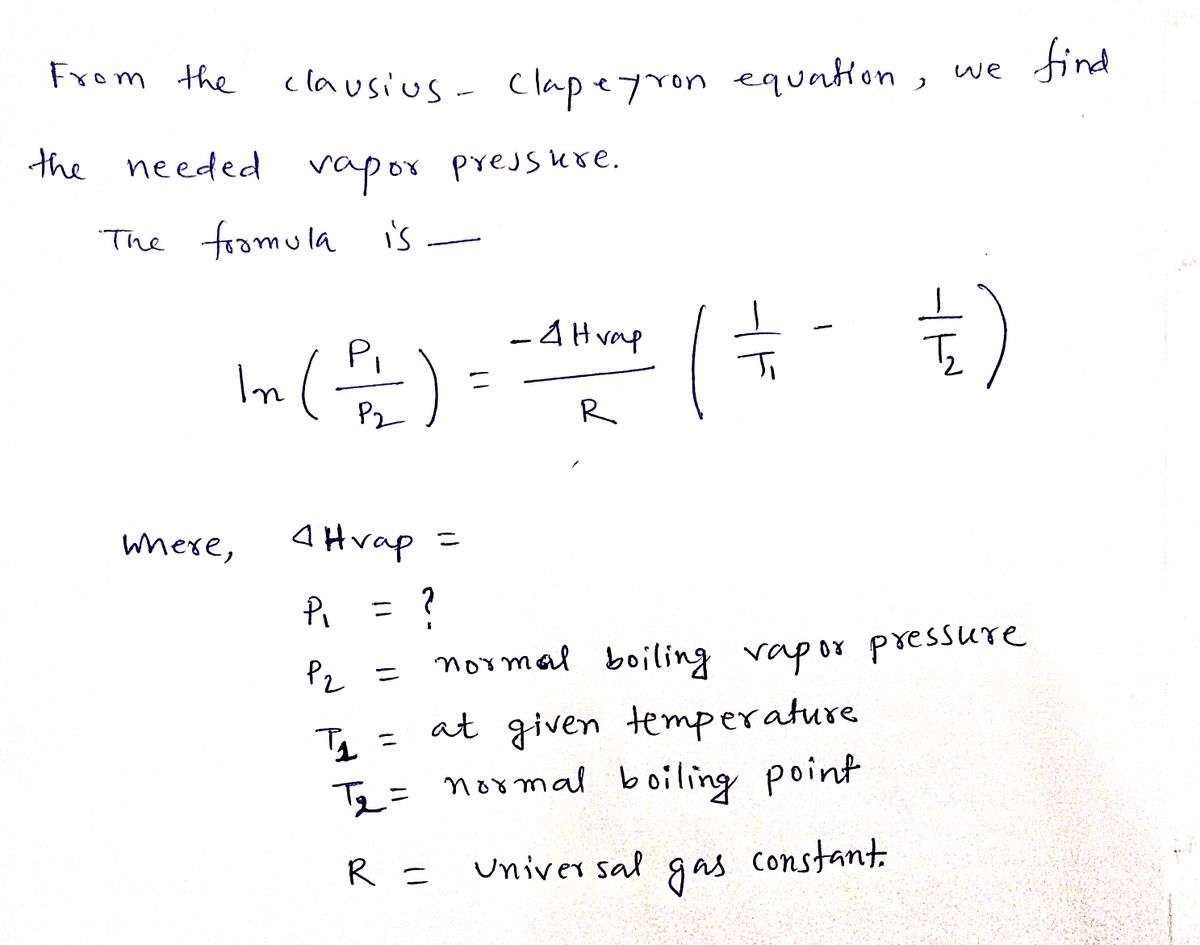 From the clausius - Clapeyron equation, we find
the needed vapor pressure.
The formula is —
ln ( P₁ / P₂ ) = -ΔHvap / R ( 1/T₁ - 1/T₂ )
where, ΔHvap =
P₁ = ?
P₂ = normal boiling vapor pressure
T₁ = at given temperature
T₂ = normal boiling point
R = universal gas constant.